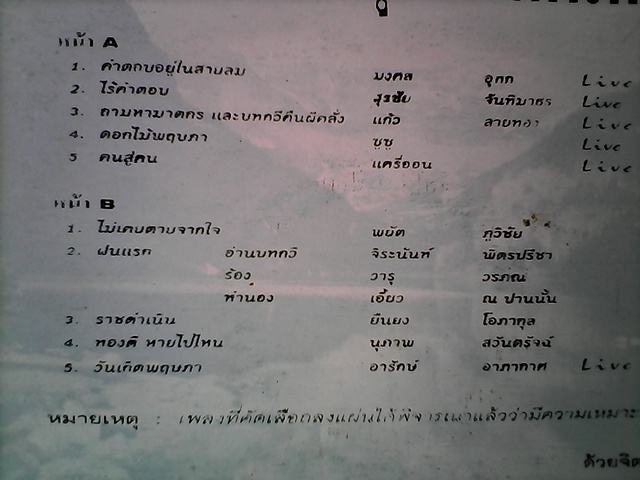 หน้า A
1. คำตอบอยู่ในสายลม มงคล อุทก Live
2. ไร้คำตอบ สุรชัย จันทิมาธร Live
3. ถามหามาตกร และบทกวีคืนผีคลั่ง แก้ว ลายทอง Live
4. ดอกไม้พฤษภา ซูซู Live
5 คนสู่คน แครี่ออน Live
หน้า B
1. ไม่เคยตายจากใจ พยัต ภูวิชัย
2. ฝนแรก อ่านบทกวี จิระนันท์ พิตรปรีชา
ร้อง วารุ วรภณ
ทำนอง เอี้ยว ณ ปานนั้น
3. ราชดำเนิน ยืนยง โอภากุล
4. ทองดี หายไปไหน นุภาพ สวันตรัจฉ์
5. วันเกิดพฤษภา อารักษ์ อาภากาศ Live
หมายเหตุ : เพลงที่คัดเลือกลงแผ่นได้พิจารณาแล้วว่ามีความเหมาะ
ด้วยจิต